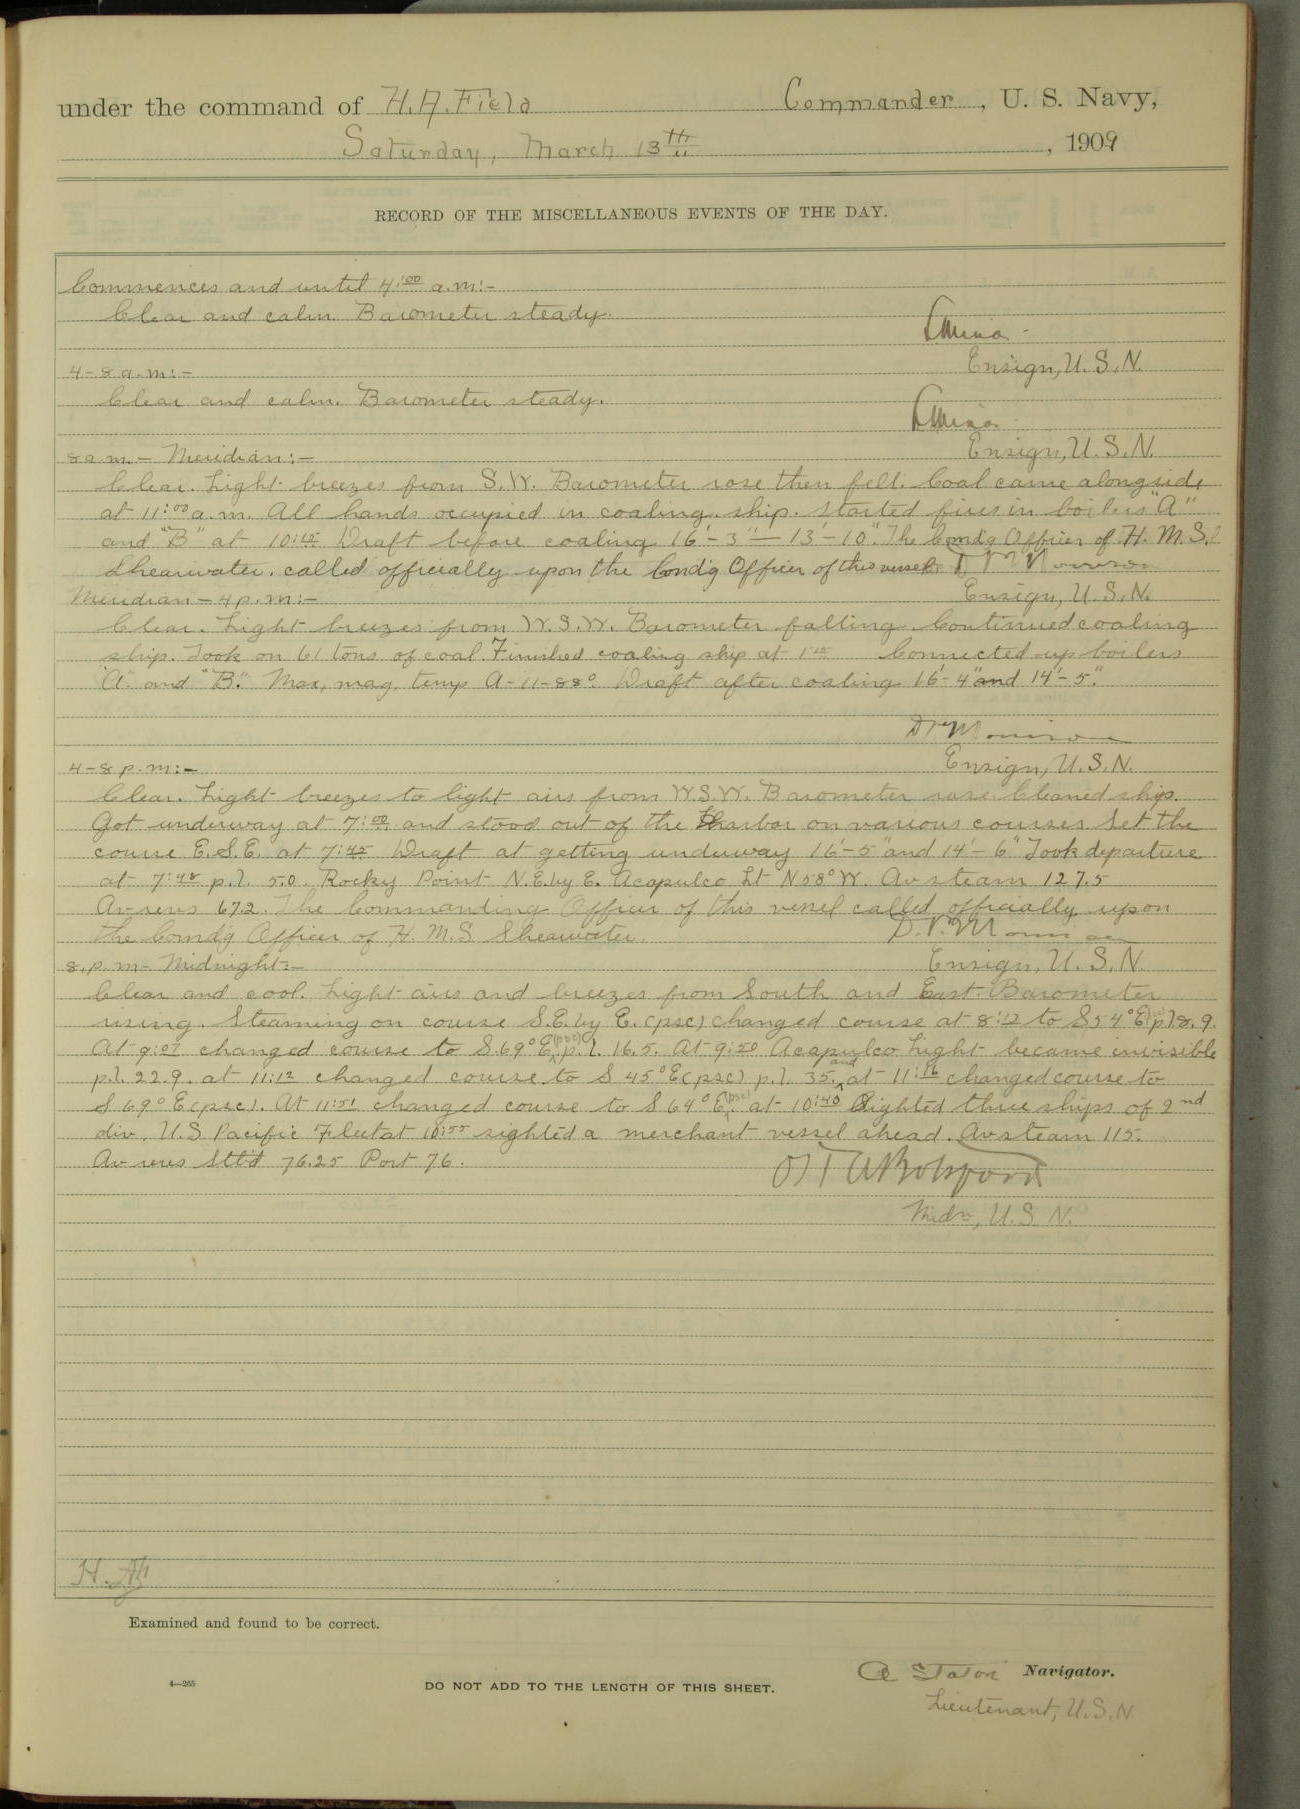 under the command of H. A. Field Commander, U. S. Navy,
Saturday, March 13th, 1909
RECORD OF THE MISCELLANEOUS EVENTS OF THE DAY.
Commences and until 4:00 a.m:-
Clear and calm. Barometer steady.
Ensign, U.S.N.
4-8 a.m:-
Clear and calm. Barometer steady.
Ensign, U.S.N.
8 a.m.- Meridian:-
Clear. Light breezes from S.W. Barometer rose then fell. Coal came alongside
at 11:00 a.m. All hands occupied in coaling ship. Started fires in boilers "A"
and "B" at 10:15 Draft before coaling 16'-3"-13'-10". The Comdg Officer of H.M.S.
Shearwater. called officially upon the Comdg Officer of this vessel.
Ensign, U.S.N.
Meridian-4 p.m:-
Clear. Light breezes from W.S.W. Barometer falling. Continued coaling
ship. Took on 61 tons of coal. Finished coaling ship at Connected up boilers
"A" and "B." Max, mag. temp A-11-88°. Draft after coaling 16'-4" and 14'-5".
Ensign, U.S.N.
4-8 p.m:-
Clear. Light breezes to light airs from W.S.W. Barometer rose. Cleaned ship.
Got underway at 7:00 and stood out of the harbor on various courses. Set the
course E.S.E. at 7:45 Draft at getting underway 16'-5" and 14'-6" Took departure
at 7:48 p.l. 5.0. Rocky Point N.E. by E. Acapulco Lt N58°W. Av steam 127.5
Av revs 67.2. The Commanding Officer of this vessel called officially upon
the Comdg Officer of H.M.S. Shearwater.
Ensign, U.S.N.
8. p.m- Midnight:-
Clear and cool. Light airs and breezes from South and East. Barometer
rising. Steaming on course S.E. by E. (psc) changed course at 8:12 to S54°E (psc) p.l. 8.9.
At 9:07 changed course to S.69°E. (psc) p.l. 16.5. At 9:50 Acapulco Light became invisible
p.l. 22.9. at 11:12 changed course to S 45°E (psc) p.l. 35. and at 11:16 changed course to
S 69°E (psc). At 11:51 changed course to S 64°E (psc). at 10:40 Sighted three ships of 2nd
div. U.S. Pacific Fleet at 10:55 sighted a merchant vessel ahead. Av steam 115.
Av revs Stb'd 76.25 Port 76.
Midn, U.S.N.
Examined and found to be correct.
Navigator.
4-265
DO NOT ADD TO THE LENGTH OF THIS SHEET.
Lieutenant, U.S.N.